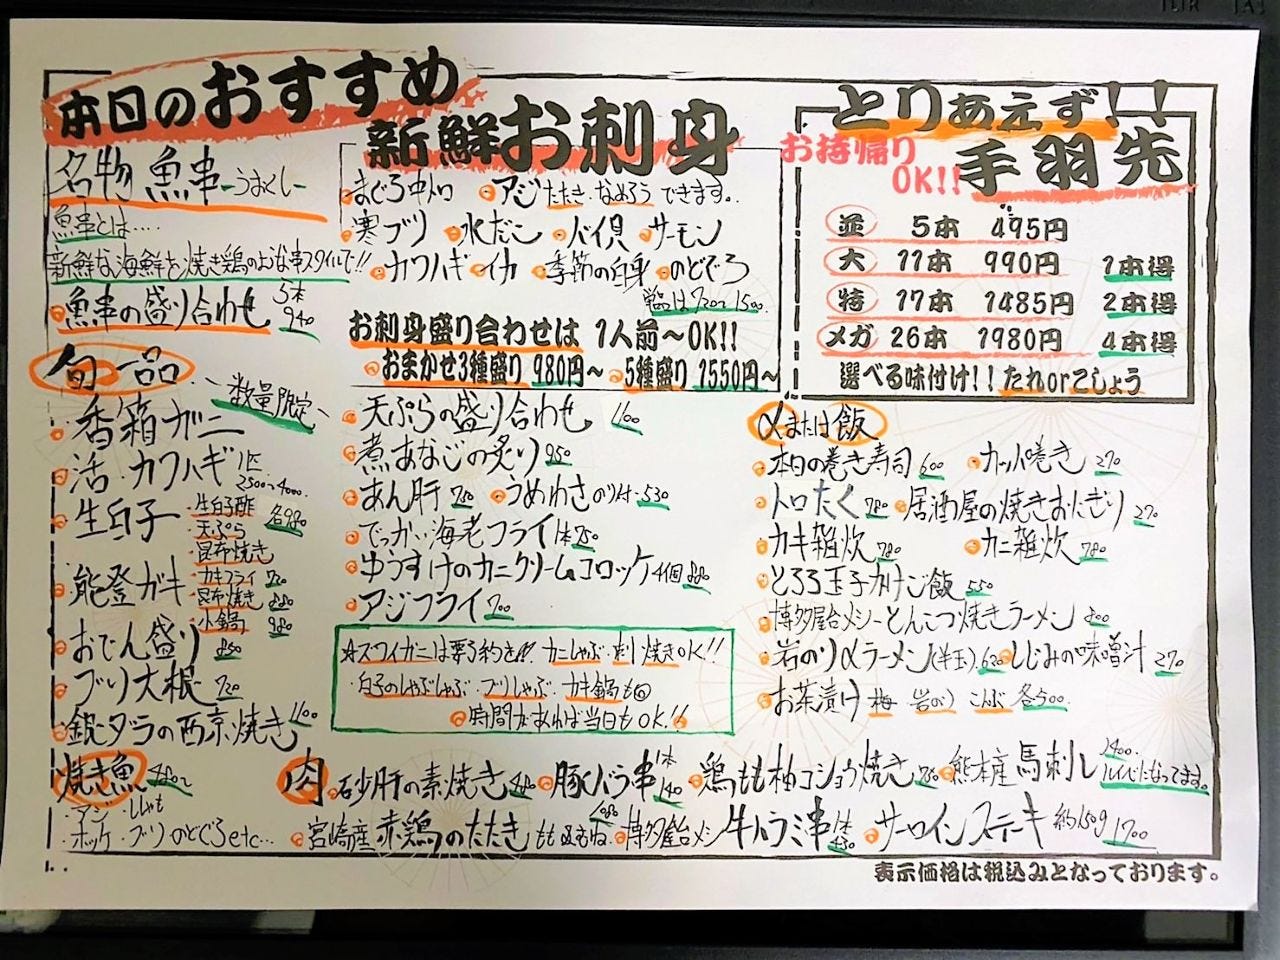 本日のおすすめ
名物 魚串 -うおくし-
魚串とは....
新鮮な海鮮を焼き鶏のような串スタイルで!!
魚串の盛り合わせ 5本 940
旬一品
数量限定
香箱ガニ
活・カワハギ 1匹 2500〜4000.
生白子 生白子酢 各980
天ぷら
昆布焼き
能登ガキ カキフライ 720
昆布焼き 880
小鍋 980
おでん盛り 850
ブリ大根 720
銀ダラの西京焼き 1100
焼き魚 480〜
・アジ・ししゃも
・ホッケ・ブリ・のどぐろetc...
新鮮お刺身
まぐろ中トロ アジ たたき なめろう できます。
寒ブリ 水だこ バイ貝 サーモン
カワハギ イカ 季節の白身 のどぐろ
単品は720〜1500.
お刺身盛り合わせは 1人前〜OK!!
おまかせ3種盛り 980円〜 5種盛り 1550円〜
天ぷらの盛り合わせ 1600
煮あなごの炙り 950
あん肝 780 うめわさ のり付 530
でっかい海老フライ 1本 750
ゆうすけのカニクリームコロッケ 4個 880
アジフライ 700
☆ズワイガニは要予約き!!! カニしゃぶ・刺し・焼きOK!!
・白子のしゃぶしゃぶ・ブリしゃぶ・カキ鍋も
時間があれば当日もOK!!
とりあえず!!
お持帰りOK!! 手羽先
並 5本 495円
大 11本 990円 1本得
特 17本 1485円 2本得
メガ 26本 1980円 4本得
選べる味付け!! たれorこしょう
〆または飯
本日の巻き寿司 600 カッパ巻き 270
トロたく 780 居酒屋の焼きおにぎり 270
カキ雑炊 780 カニ雑炊 780
とろろ玉子かけご飯 550
博多屋台メシ〜とんこつ焼きラーメン 800
岩のり〆ラーメン(半玉) 620 しじみの味噌汁 270
お茶漬け 梅 岩のり こんぶ 各500.
肉 砂肝の素焼き 480 豚バラ串 1本 140 鶏もも柚コショウ焼き 780 熊本産 馬刺し 1400. ルイベになってます。
宮崎産 赤鶏のたたき もも&むね 1080 博多屋台メシ 牛ハラミ串 1本 430 サーロインステーキ 約150g 1700
表示価格は税込みとなっております。